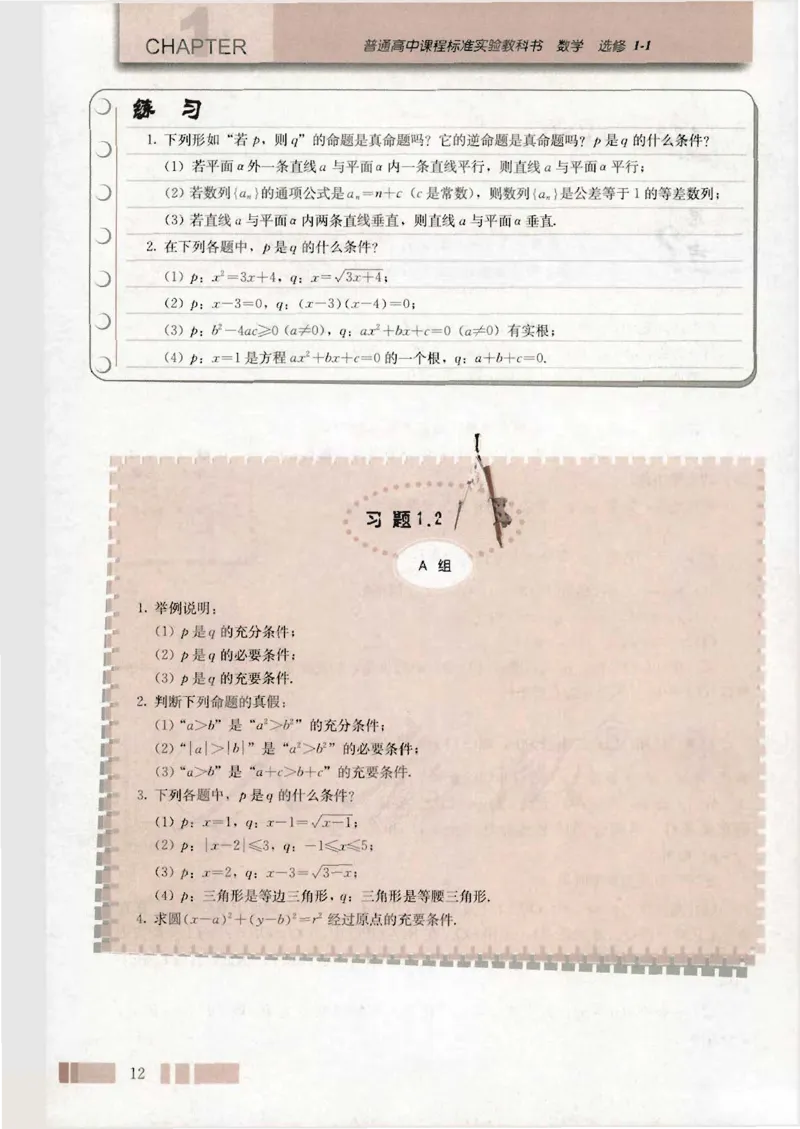 CHAPTER 1
普通高中课程标准实验教科书 数学 选修 1-1
练 习
1. 下列形如“若 p，则 q”的命题是真命题吗？它的逆命题是真命题吗？p 是 q 的什么条件？
(1) 若平面 α 外一条直线 a 与平面 α 内一条直线平行，则直线 a 与平面 α 平行；
(2) 若数列{aₙ}的通项公式是 aₙ=n+c（c 是常数），则数列{aₙ}是公差等于 1 的等差数列；
(3) 若直线 a 与平面 α 内两条直线垂直，则直线 a 与平面 α 垂直.
2. 在下列各题中，p 是 q 的什么条件？
(1) p：x²=3x+4，q：x=√(3x+4)；
(2) p：x−3=0，q：(x−3)(x−4)=0；
(3) p：b²−4ac≥0 (a≠0)，q：ax²+bx+c=0 (a≠0) 有实根；
(4) p：x=1 是方程 ax²+bx+c=0 的一个根，q：a+b+c=0.
习 题 1.2
A 组
1. 举例说明：
(1) p 是 q 的充分条件；
(2) p 是 q 的必要条件；
(3) p 是 q 的充要条件.
2. 判断下列命题的真假：
(1) “a>b” 是 “a²>b²” 的充分条件；
(2) “|a|>|b|” 是 “a²>b²” 的必要条件；
(3) “a>b” 是 “a+c>b+c” 的充要条件.
3. 下列各题中，p 是 q 的什么条件？
(1) p：x=1，q：x−1=√(x−1)；
(2) p：|x−2|≤3，q：−1≤x≤5；
(3) p：x=2，q：x−3=√(3−x)；
(4) p：三角形是等边三角形，q：三角形是等腰三角形.
4. 求圆(x−a)²+(y−b)²=r² 经过原点的充要条件.
12